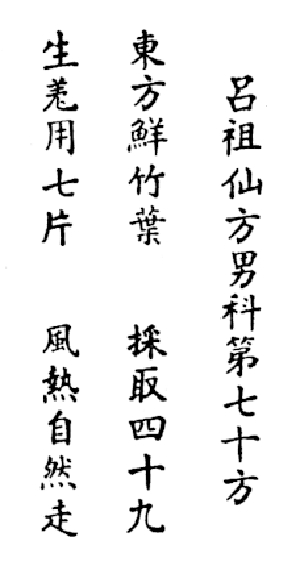 呂祖仙方男科第七十方
東方鮮竹葉　採取四十九
生羗用七片　風熱自然走